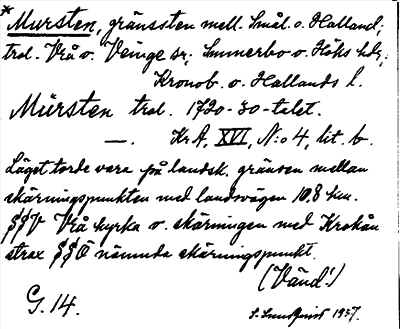 *Mursten, gränssten mell. Smål. o. Halland;
trol. Vrå o. Veinge sr; Sunnerbo o. Höks hdr;
Kronob. o. Hallands l.
Mürsten trol. 1720-30-talet.
—. KrA, XVI, N:o 4, lit. b.
Läget torde vara på landsk. gränsen mellan
skärningspunkten med landsvägen 10,8 km.
SSV Vrå kyrka o. skärningen med Krokån
strax SSÖ nämnda skärningspunkt.
(Vänd!)
G. 14.
1937.